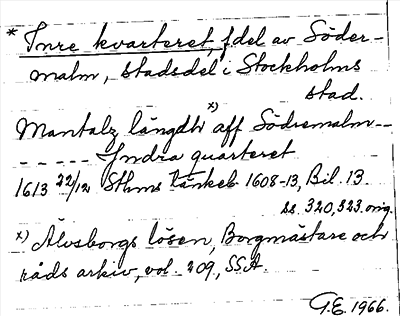 * Inre kvarteret, f del av Söder-
malm, stadsdel i Stockholms
stad.
Mantalz längdh x) aff Södremalm--
----- Indra quarteret
1613 22/12 Sthms tänkeb 1608-13, Bil. 13.
ss. 320, 323 orig.
x) Älvsborgs lösen, Borgmästare och
råds arkiv, vol. 209, SSA.
G.E. 1966.